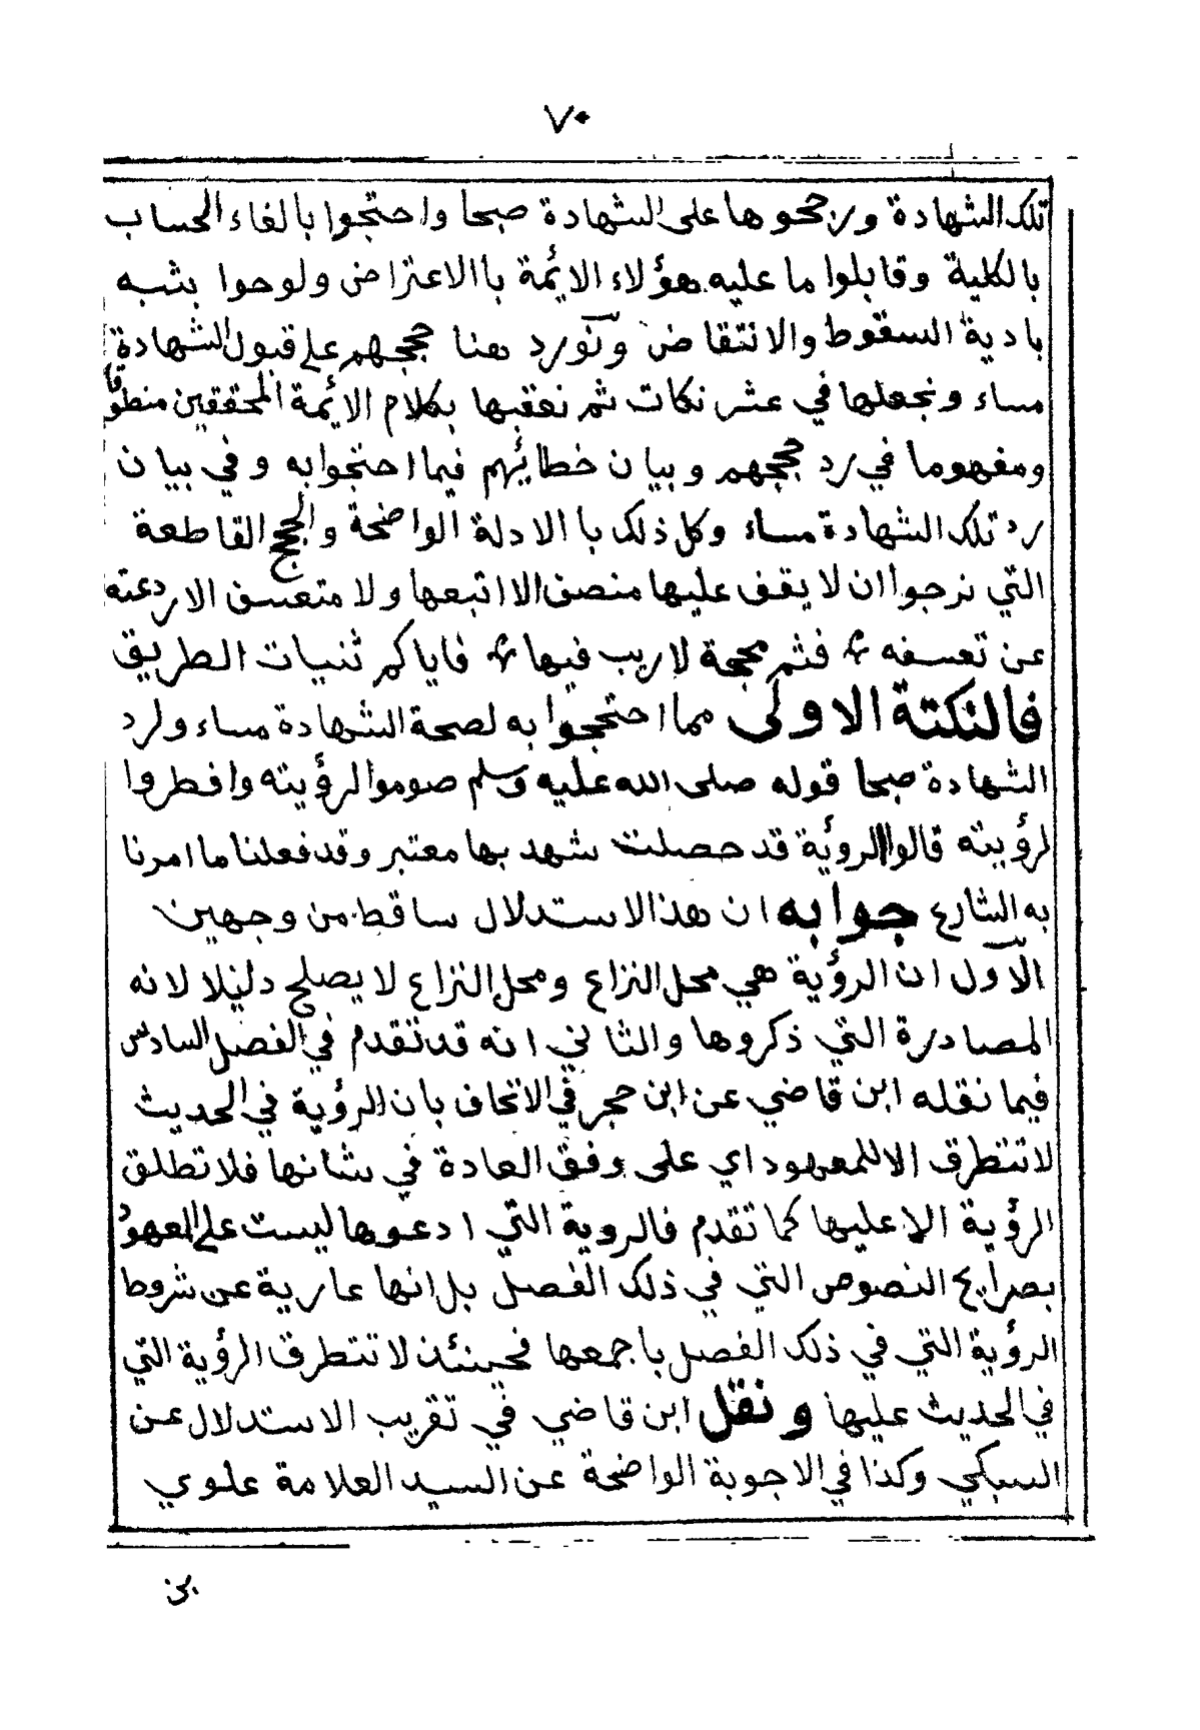 ٧٠
تلك الشهادة ورجحوها على الشهادة صبحا واحتجوا بالغاء الحساب
بالكلية وقابلوا ما عليه هؤلاء الائمة باالاعتراض ولوحوا بشبه
بادية السقوط والانتقاض ونورد هنا حججهم على قبول الشهادة
مساء ونجعلها في عشر نكات ثم نعقبها بكلام الائمة المحققين منطوقا
ومفهوما في رد حججهم وبيان خطائهم فيما احتجوا به وفي بيان
رد تلك الشهادة مساء وكل ذلك با الادلة الواضحة والحجج القاطعة
التي نرجوا ان لا يقف عليها منصف الا اتبعها ولا متعسف الا ردعته
عن تعسفه فثم محجة لا ريب فيها فاياكم ثنيات الطريق
فالنكتة الاولى مما احتججوا به لصحة الشهادة مساء ولرد
الشهادة صبحا قوله صلى الله عليه وسلم صوموا لرؤيته وافطروا
لرؤيته قالوا الرؤية قد حصلت شهد بها معتبر وقد فعلنا ما امرنا
به الشارع جوابه ان هذا الاستدلال ساقط من وجهين
الاول ان الرؤية هي محل النزاع ومحل النزاع لا يصلح دليلا لانه
المصادرة التي ذكروها والثاني انه قد تقدم في الفصل السادس
فيما نقله ابن قاضي عن ابن حجر في الاتحاف بان الرؤية في الحديث
لا تتطرق الا للمعهود اي على وفق العادة في شانها فلا تطلق
الرؤية الا عليها كما تقدم فالروية التي ادعوها ليست على المعهود
بصرايح النصوص التي في ذلك الفصل بل انها عارية عن شروط
الرؤية التي في ذلك الفصل باجمعها فحينئذ لا تتطرق الرؤية التي
في الحديث عليها ونقل ابن قاضي في تقريب الاستدلال عن
السبكي وكذا في الاجوبة الواضحة عن السيد العلامة علوي
بن